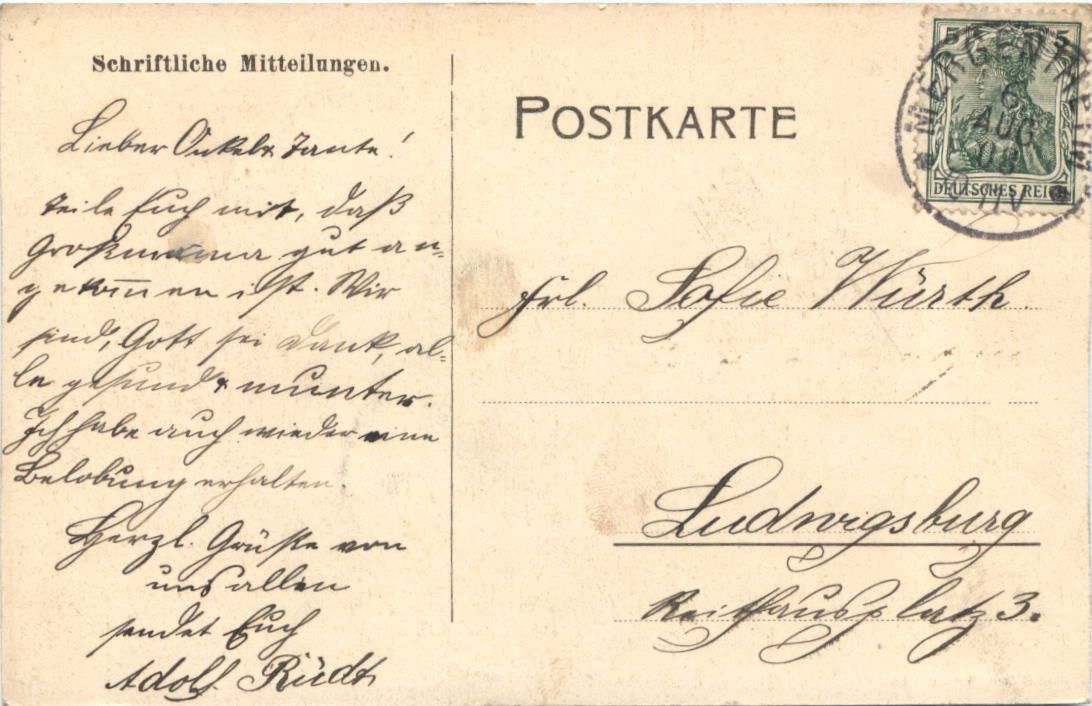 Schriftliche Mitteilungen.
Lieber Onkel & Tante!
teile Euch mit, daß
Großmama gut an-
gekom̅en ist. Wir
sind, Gott sei Dank, al-
le gesund & munter.
Ich habe auch wieder eine
Belobung erhalten.
Herzl. Grüße von
uns allen
sendet Euch
Adolf Rüdt
POSTKARTE
5 5
DEUTSCHES REICH
MERGENTHEIM
6
AUG
09
IV
Frl. Sofie Würth
Ludwigsburg
Reithausplatz 3.